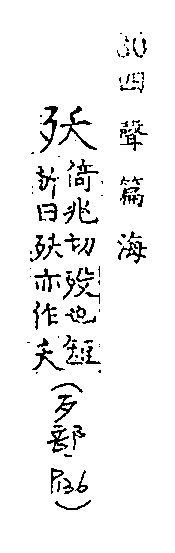 30四聲篇海
殀
倚兆切歿也短
折曰殀亦作夭
(歹部P.136)